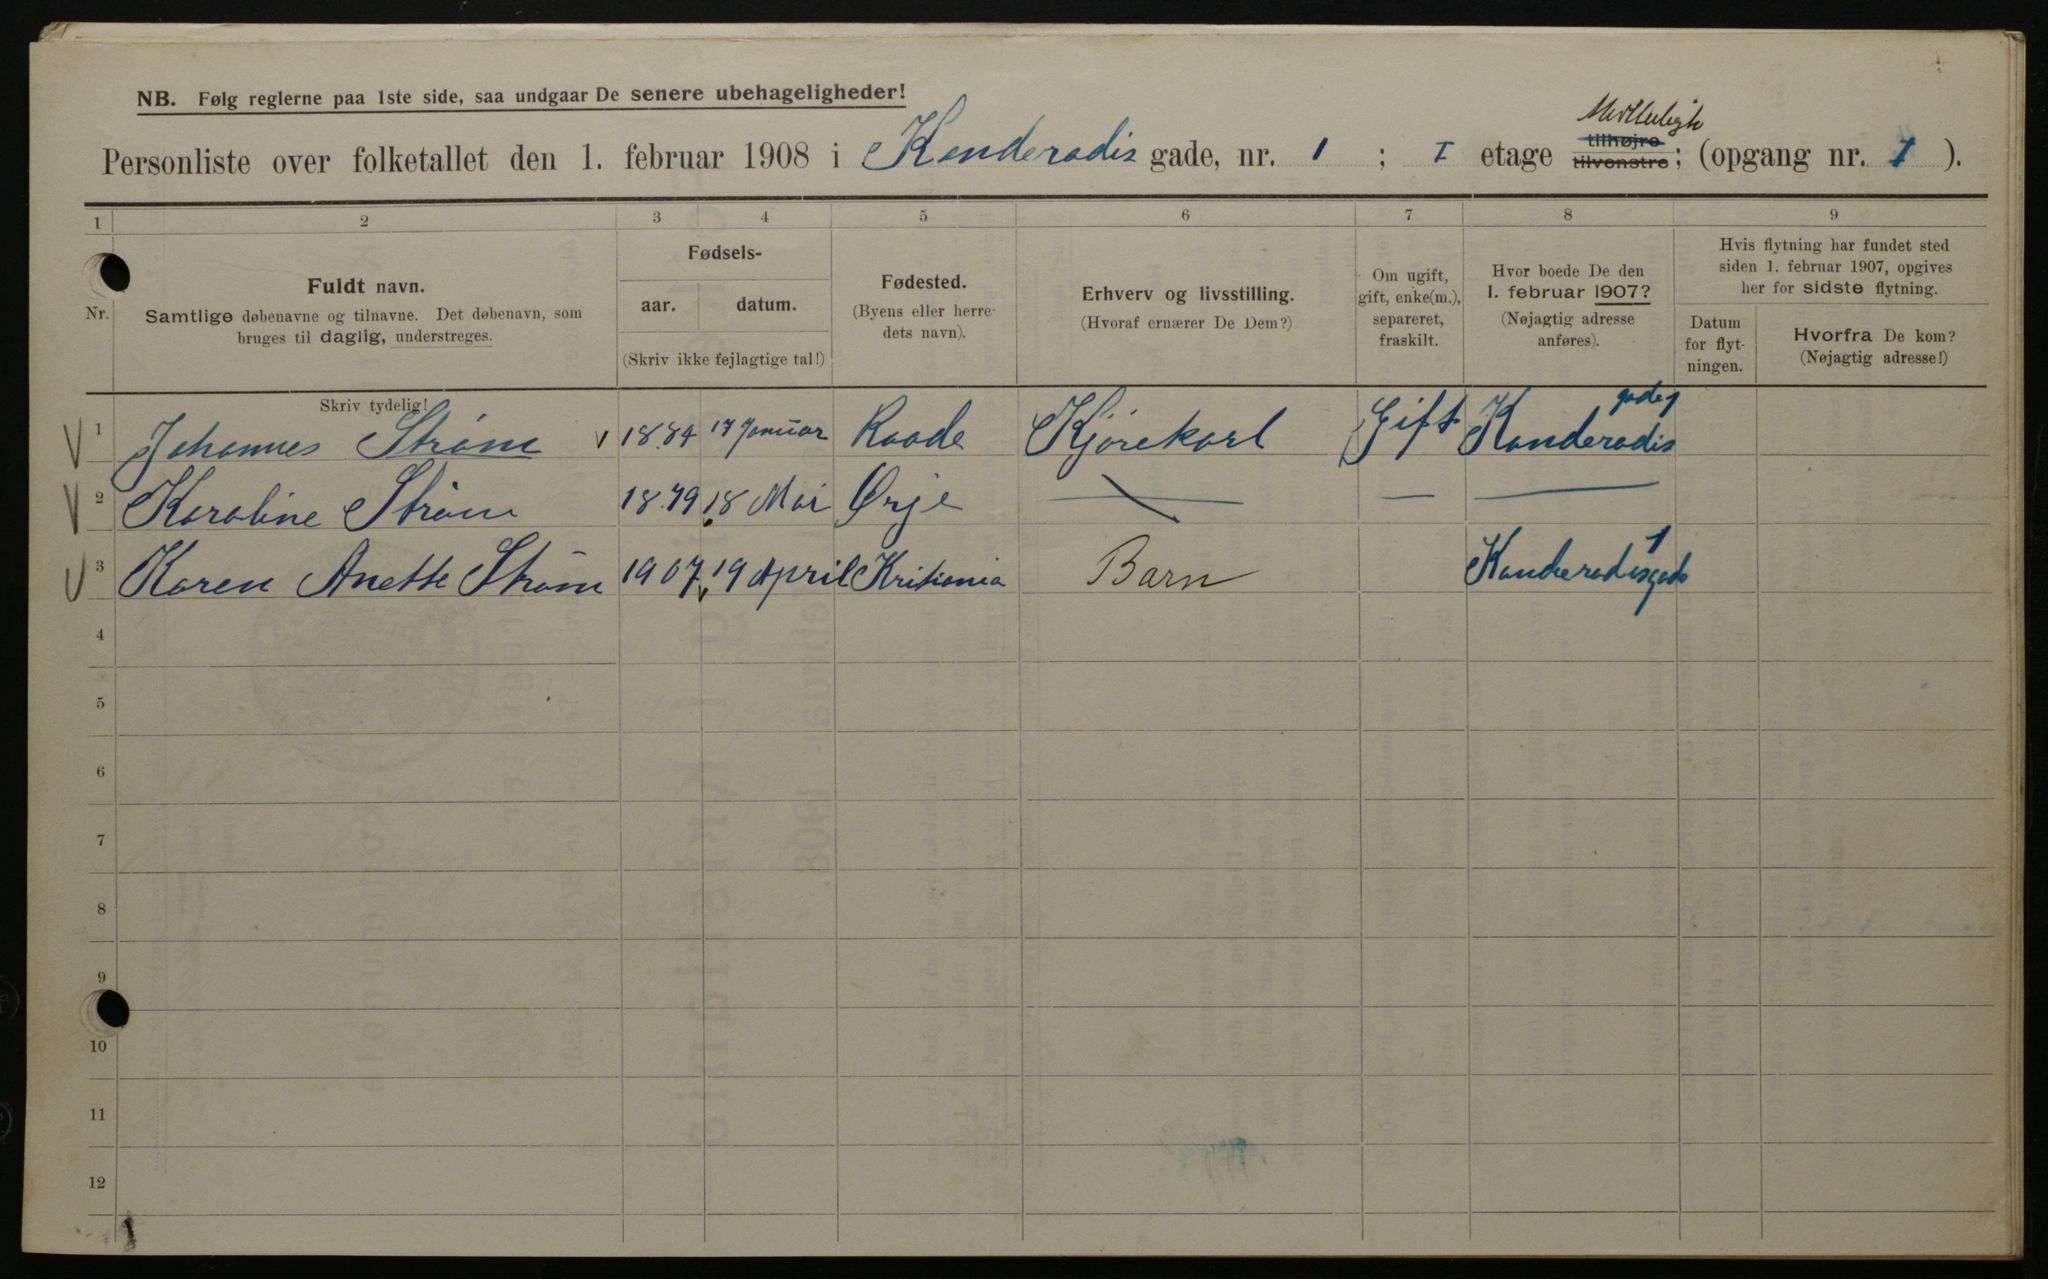 NB. Følg reglerne paa 1ste side, saa undgaar De senere ubehageligheder!
Personliste over folketallet den 1. februar 1908 i Kanderadis gade, nr. 1 ; I etage tilhøjre tilvenstre; (opgang nr. 1 ).
1 2 3 4 5 6 7 8 9
Nr.
Fuldt navn.
Samtlige døbenavne og tilnavne. Det døbenavn, som
bruges til daglig, understreges.
Skriv tydelig!
Fødsels-
aar. datum.
(Skriv ikke fejlagtige tal!)
Fødested.
(Byens eller herre-
dets navn).
Erhverv og livsstilling.
(Hvoraf ernærer De Dem?)
Om ugift,
gift, enke(m.),
separeret,
fraskilt.
Hvor boede De den
1. februar 1907?
(Nøjagtig adresse
anføres).
Hvis flytning har fundet sted
siden 1. februar 1907, opgives
her for sidste flytning.
Datum
for flyt-
ningen.
Hvorfra De kom?
(Nøjagtig adresse!)
1 Johannes Strøm 1884 17 Januar Raade Kjørekarl Gift Kanderadis gade 1
2 Karoline Strøm 1879 18 Mai Ørje — — —
3 Karen Anette Strøm 1907 19 April Kristiania Barn Kanderadisgade 1
4
5
6
7
8
9
10
11
12